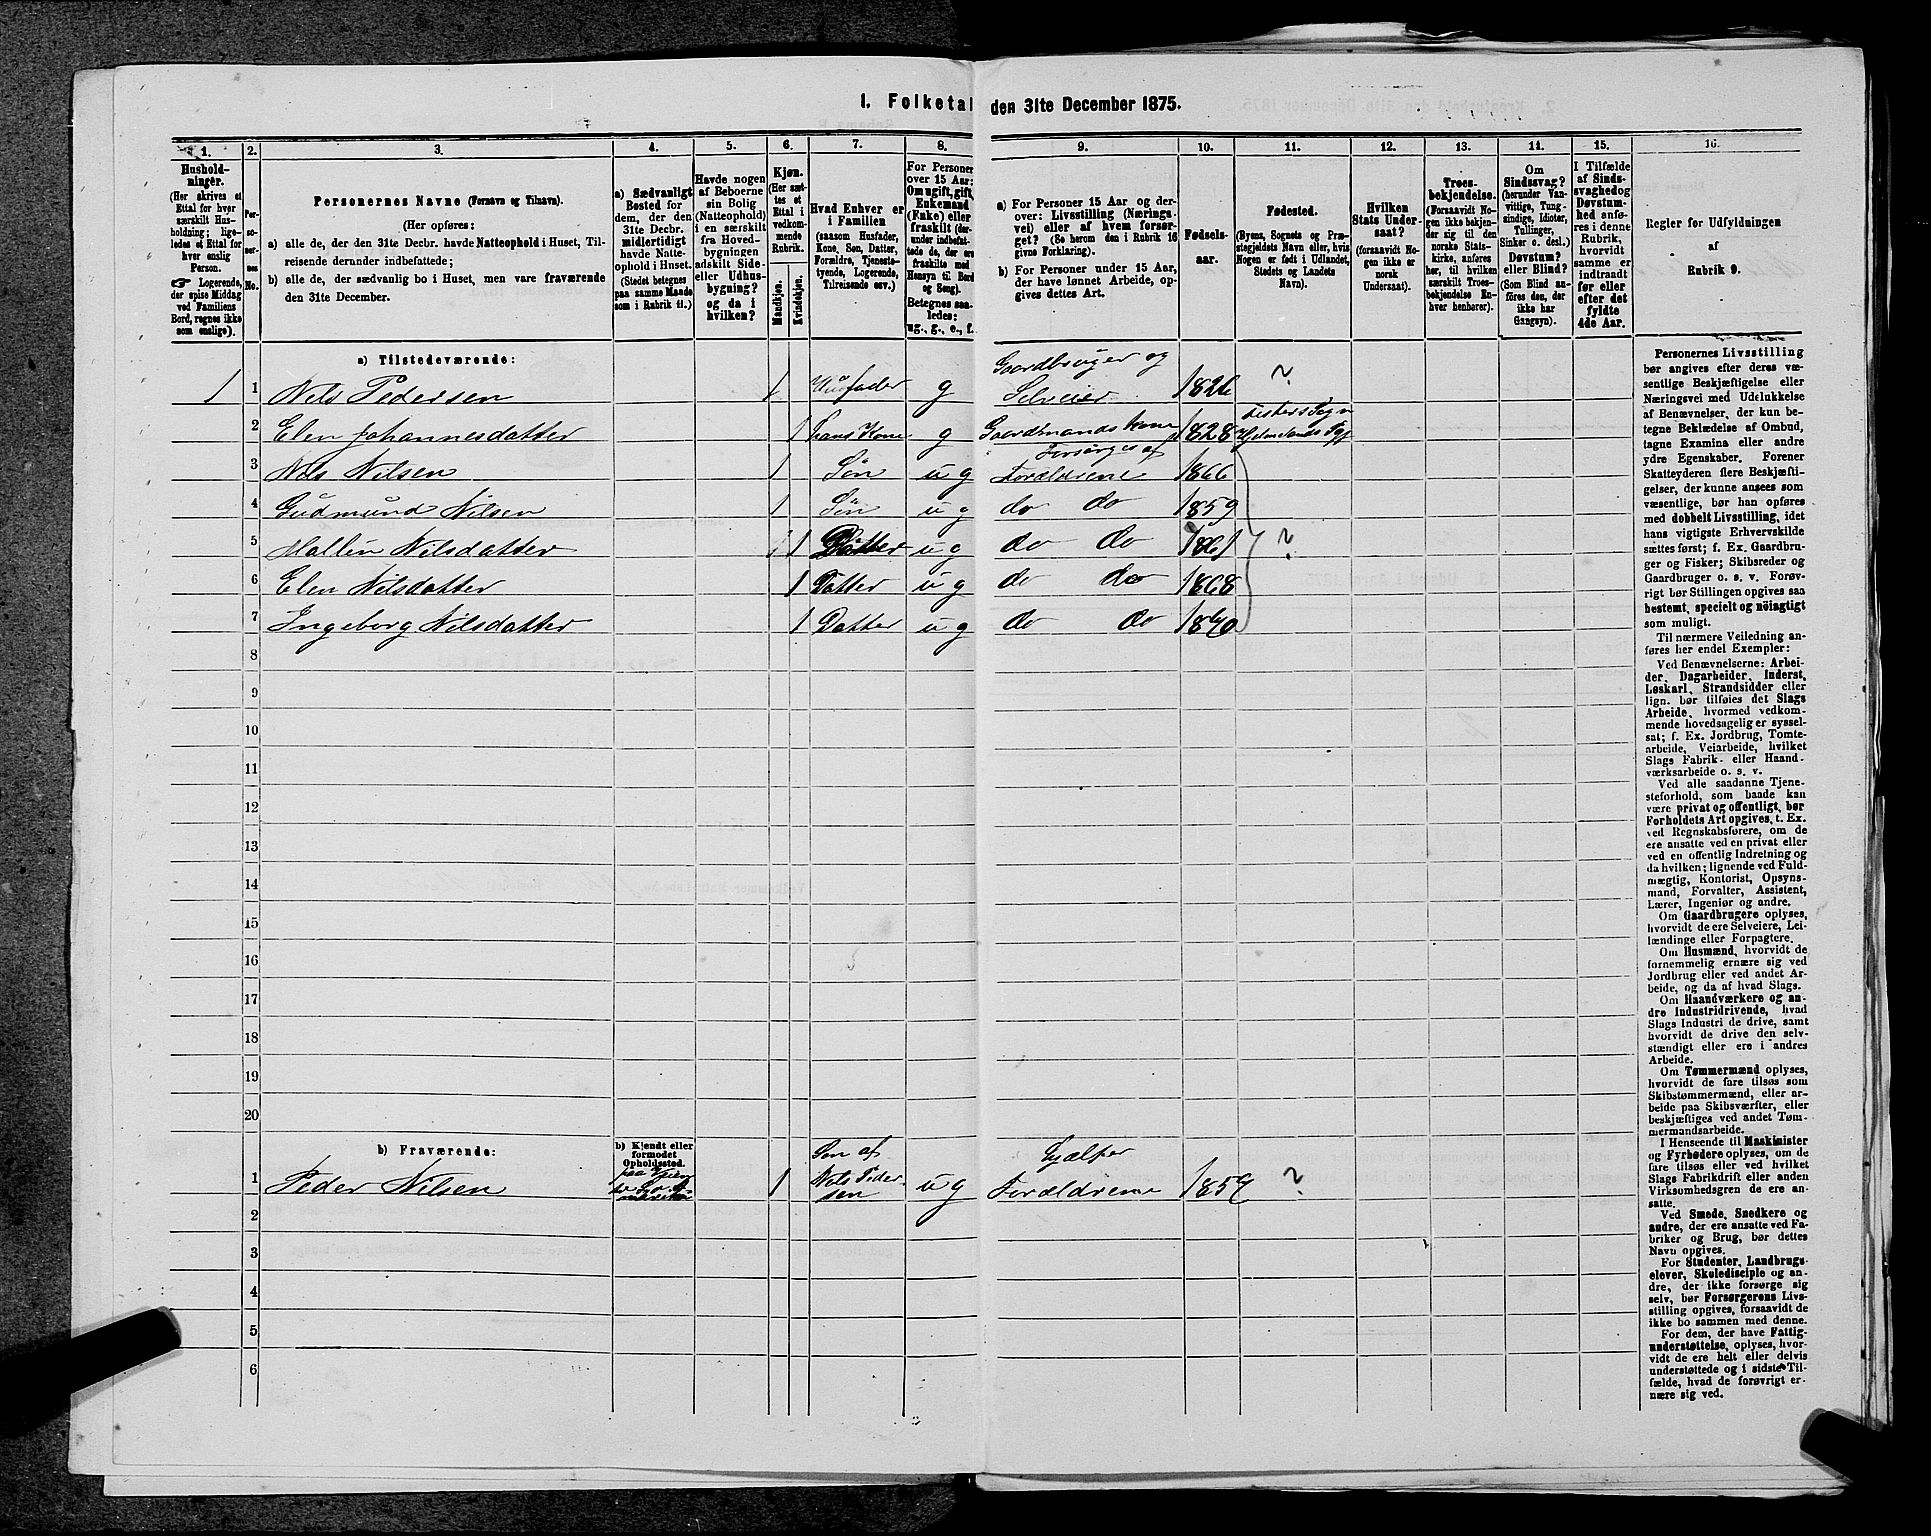 1. Folketal den 31te December 1875.
1.
Hushold-
ninger.
(Her skrives et
Ettal for hver
særskilt Hus-
holdning; lige-
ledes et Ettal for
hver enslig
Person.
☞ Logerende,
der spise Middag
ved Familiens
Bord, regnes ikke
som enslige).
2.
Per-
so-
ner-
nes
No.
3.
Personernes Navne (Fornavn og Tilnavn).
(Her opføres:
a) alle de, der den 31te Decbr. havde Natteophold i Huset, Til-
reisende derunder indbefattede;
b) alle de, der sædvanlig bo i Huset, men vare fraværende
den 31te December.
4.
a) Sædvanligt
Bosted for
dem, der den
31te Decbr.
midlertidigt
havde Natte-
ophold i Huset.
(Stedet betegnes
paa samme Maade
som i Rubrik 11.)
5.
Havde nogen
af Beboerne
sin Bolig
(Natteophold)
i en særskilt
fra Hoved-
bygningen
adskilt Side-
eller Udhus-
bygning?
og da i
hvilken?
6.
Kjøn.
(Her sæt-
tes et
Ettal i
vedkom-
mende
Rubrik.
Mandkjøn.
Kvindekjøn.
7.
Hvad Enhver er
i Familien
(saasom Husfader,
Kone, Søn, Datter,
Forældre, Tjeneste-
tyende, Logerende,
Tilreisende osv.)
8.
For Personer
over 15 Aar:
Om ugift, gift,
Enkemand
(Enke) eller
fraskilt (der-
under indbefat-
tede de, som ere
fraskilte med
Hensyn til Bord
og Seng).
Betegnes saa-
ledes:
ug., g., e., f.
9.
a) For Personer 15 Aar og der-
over: Livsstilling (Nærings-
vei) eller af hvem forsør-
get? (Se herom den i Rubrik 16
givne Forklaring.)
b) For Personer under 15 Aar,
der have lønnet Arbeide, op-
gives dettes Art.
10.
Fødsels-
aar.
11.
Fødested.
(Byens, Sognets og Præ-
stegjeldets Navn eller, hvis
Nogen er født i Udlandet,
Stedets og Landets
Navn).
12.
Hvilken
Stats Under-
saat?
(forsaavidt No-
gen ikke er
norsk
Undersaat).
13.
Troes-
bekjendelse.
(Forsaavidt No-
gen ikke bekjen-
der sig til den
norske Stats-
kirke, anføres
her, til hvilken
særskilt Troes-
bekjendelse En-
hver henhører).
14.
Om
Sindssvag?
(herunder Van-
vittige, Tung-
sindige, Idioter,
Tullinger,
Sinker o. desl.)
Døvstum?
eller Blind?
(Som Blind an-
føres den, der
ikke har
Gangsyn).
15.
I Tilfælde
af Sinds-
svaghed og
Døvstum-
hed anfø-
res i denne
Rubrik,
hvorvidt
samme er
indtraadt
før eller
efter det
fyldte
4de Aar.
16.
Regler for Udfyldningen
af
Rubrik 9.
a) Tilstedeværende:
1 1 Nils Pedersen 1 Husfader g Gaardbruger og Selveier 1826 ?
2 Elen Johannesdatter 1 hans Kone g Gaardmands Kone 1828 Hjelmelands
3 Nils Nilsen 1 Søn u g Forsørges af Forældrene 1866
4 Gudmund Nilsen 1 Søn u g do do 1859
5 Mallin Nilsdatter 1 Datter u g do do 1861 ?
6 Elen Nilsdatter 1 Datter u g do do 1868
7 Ingeborg Nilsdatter 1 Datter u g do do
8
9
10
11
12
13
14
15
16
17
18
19
20
b) Fraværende:
b) Kjendt eller
formodet
Opholdssted.
1 Peder Nilsen 1 Søn af Nils Pedersen u g Hjælper Forældrene ?
2
3
4
5
6
Personernes Livsstilling
bør angives efter deres væ-
sentlige Beskjæftigelse eller
Næringsvei med Udelukkelse
af Benævnelser, der kun be-
tegne Beklædelse af Ombud,
tagne Examina eller andre
ydre Egenskaber. Forener
Skatteyderen flere Beskjæfti-
gelser, der kunne ansees som
væsentlige, bør han opføres
med dobbelt Livsstilling, idet
hans vigtigste Erhvervskilde
sættes først; f. Ex. Gaardbru-
ger og Fisker; Skibsreder og
Gaardbruger o. s. v. Forøv-
rigt bør Stillingen opgives saa
bestemt, specielt og nöiagtigt
som muligt.
Til nærmere Veiledning an-
føres her endel Exempler:
Ved Benævnelserne: Arbei-
der, Dagarbeider, Inderst,
Løskarl, Strandsidder eller
lign. bør tilføies det Slags
Arbeide, hvormed vedkom-
mende hovedsagelig er syssel-
sat; f. Ex. Jordbrug, Tomte-
arbeide, Veiarbeide, hvilket
Slags Fabrik- eller Haand-
værksarbeide o. s. v.
Ved alle saadanne Tjene-
steforhold, som baade kan
være privat og offentligt, bør
Forholdets Art opgives, t. Ex.
ved Regnskabsførere, om de
ere ansatte ved en privat eller
ved en offentlig Indretning og
da hvilken; lignende ved Fuld-
mægtig, Kontorist, Opsyns-
mand, Forvalter, Assistent,
Lærer, Ingeniør og andre.
Om Gaardbrugere oplyses,
hvorvidt de ere Selveiere, Lei-
lændinge eller Forpagtere.
Om Husmænd, hvorvidt de
fornemmelig ernære sig ved
Jordbrug eller ved andet Ar-
beide, og da af hvad Slags.
Om Haandværkere og an-
dre Industridrivende, hvad
Slags Industri de drive, samt
hvorvidt de drive den selv-
stændigt eller ere i andres
Arbeide.
Om Tømmermænd oplyses,
hvorvidt de fare tilsøs som
Skibstømmermænd, eller ar-
beide paa Skibsværfter, eller
beskjæftiges ved andet Tøm-
mermandsarbeide.
I Henseende til Maskinister
og Fyrbødere oplyses, om de
fare tilsøs eller ved hvilket
Slags Fabrikdrift eller anden
Virksomhedsgren de ere an-
satte.
Ved Smede, Snedkere og
andre, der ere ansatte ved Fa-
briker og Brug, bør dettes
Navn opgives.
For Studenter, Landbrugs-
elever, Skoledisciple og an-
dre, der ikke forsørge sig
selv, bør Forsørgerens Livs-
stilling opgives, forsaavidt de
ikke bo sammen med denne.
For dem, der have Fattig-
understøttelse, oplyses, hvor-
vidt de ere helt eller delvis
understøttede og i sidste Til-
fælde, hvad de forøvrigt er-
nære sig ved.